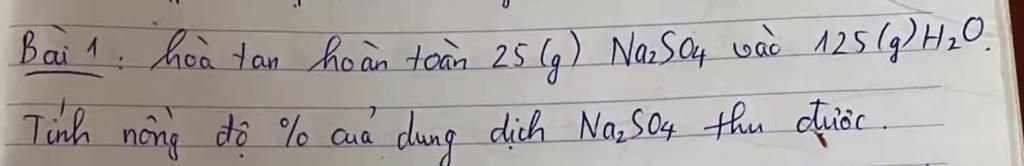 Bài 1: hoà tan hoàn toàn 25(g) Na₂SO₄ vào 125(g) H₂O.
Tính nồng độ % cuả dung dịch Na₂SO₄ thu được.